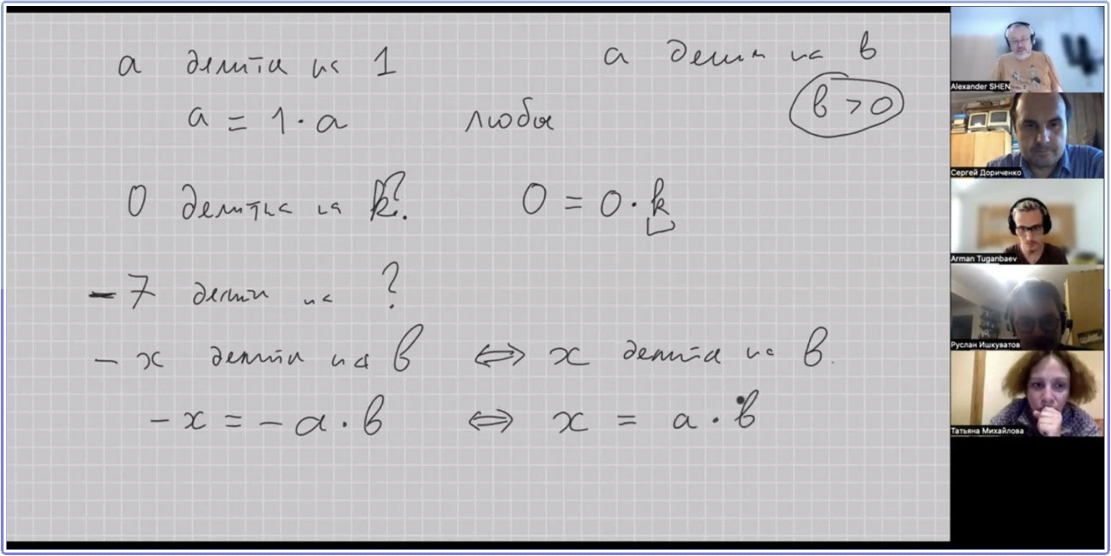 a делится на 1
a делится на b
a = 1 · a любое
b > 0
0 делится на k?
0 = 0 · k
-7 делится на ?
-x делится на b ⇔ x делится на b.
-x = -a · b ⇔ x = a · b
Alexander SHEN
Сергей Дориченко
Arman Tuganbaev
Руслан Ишкуватов
Татьяна Михайлова